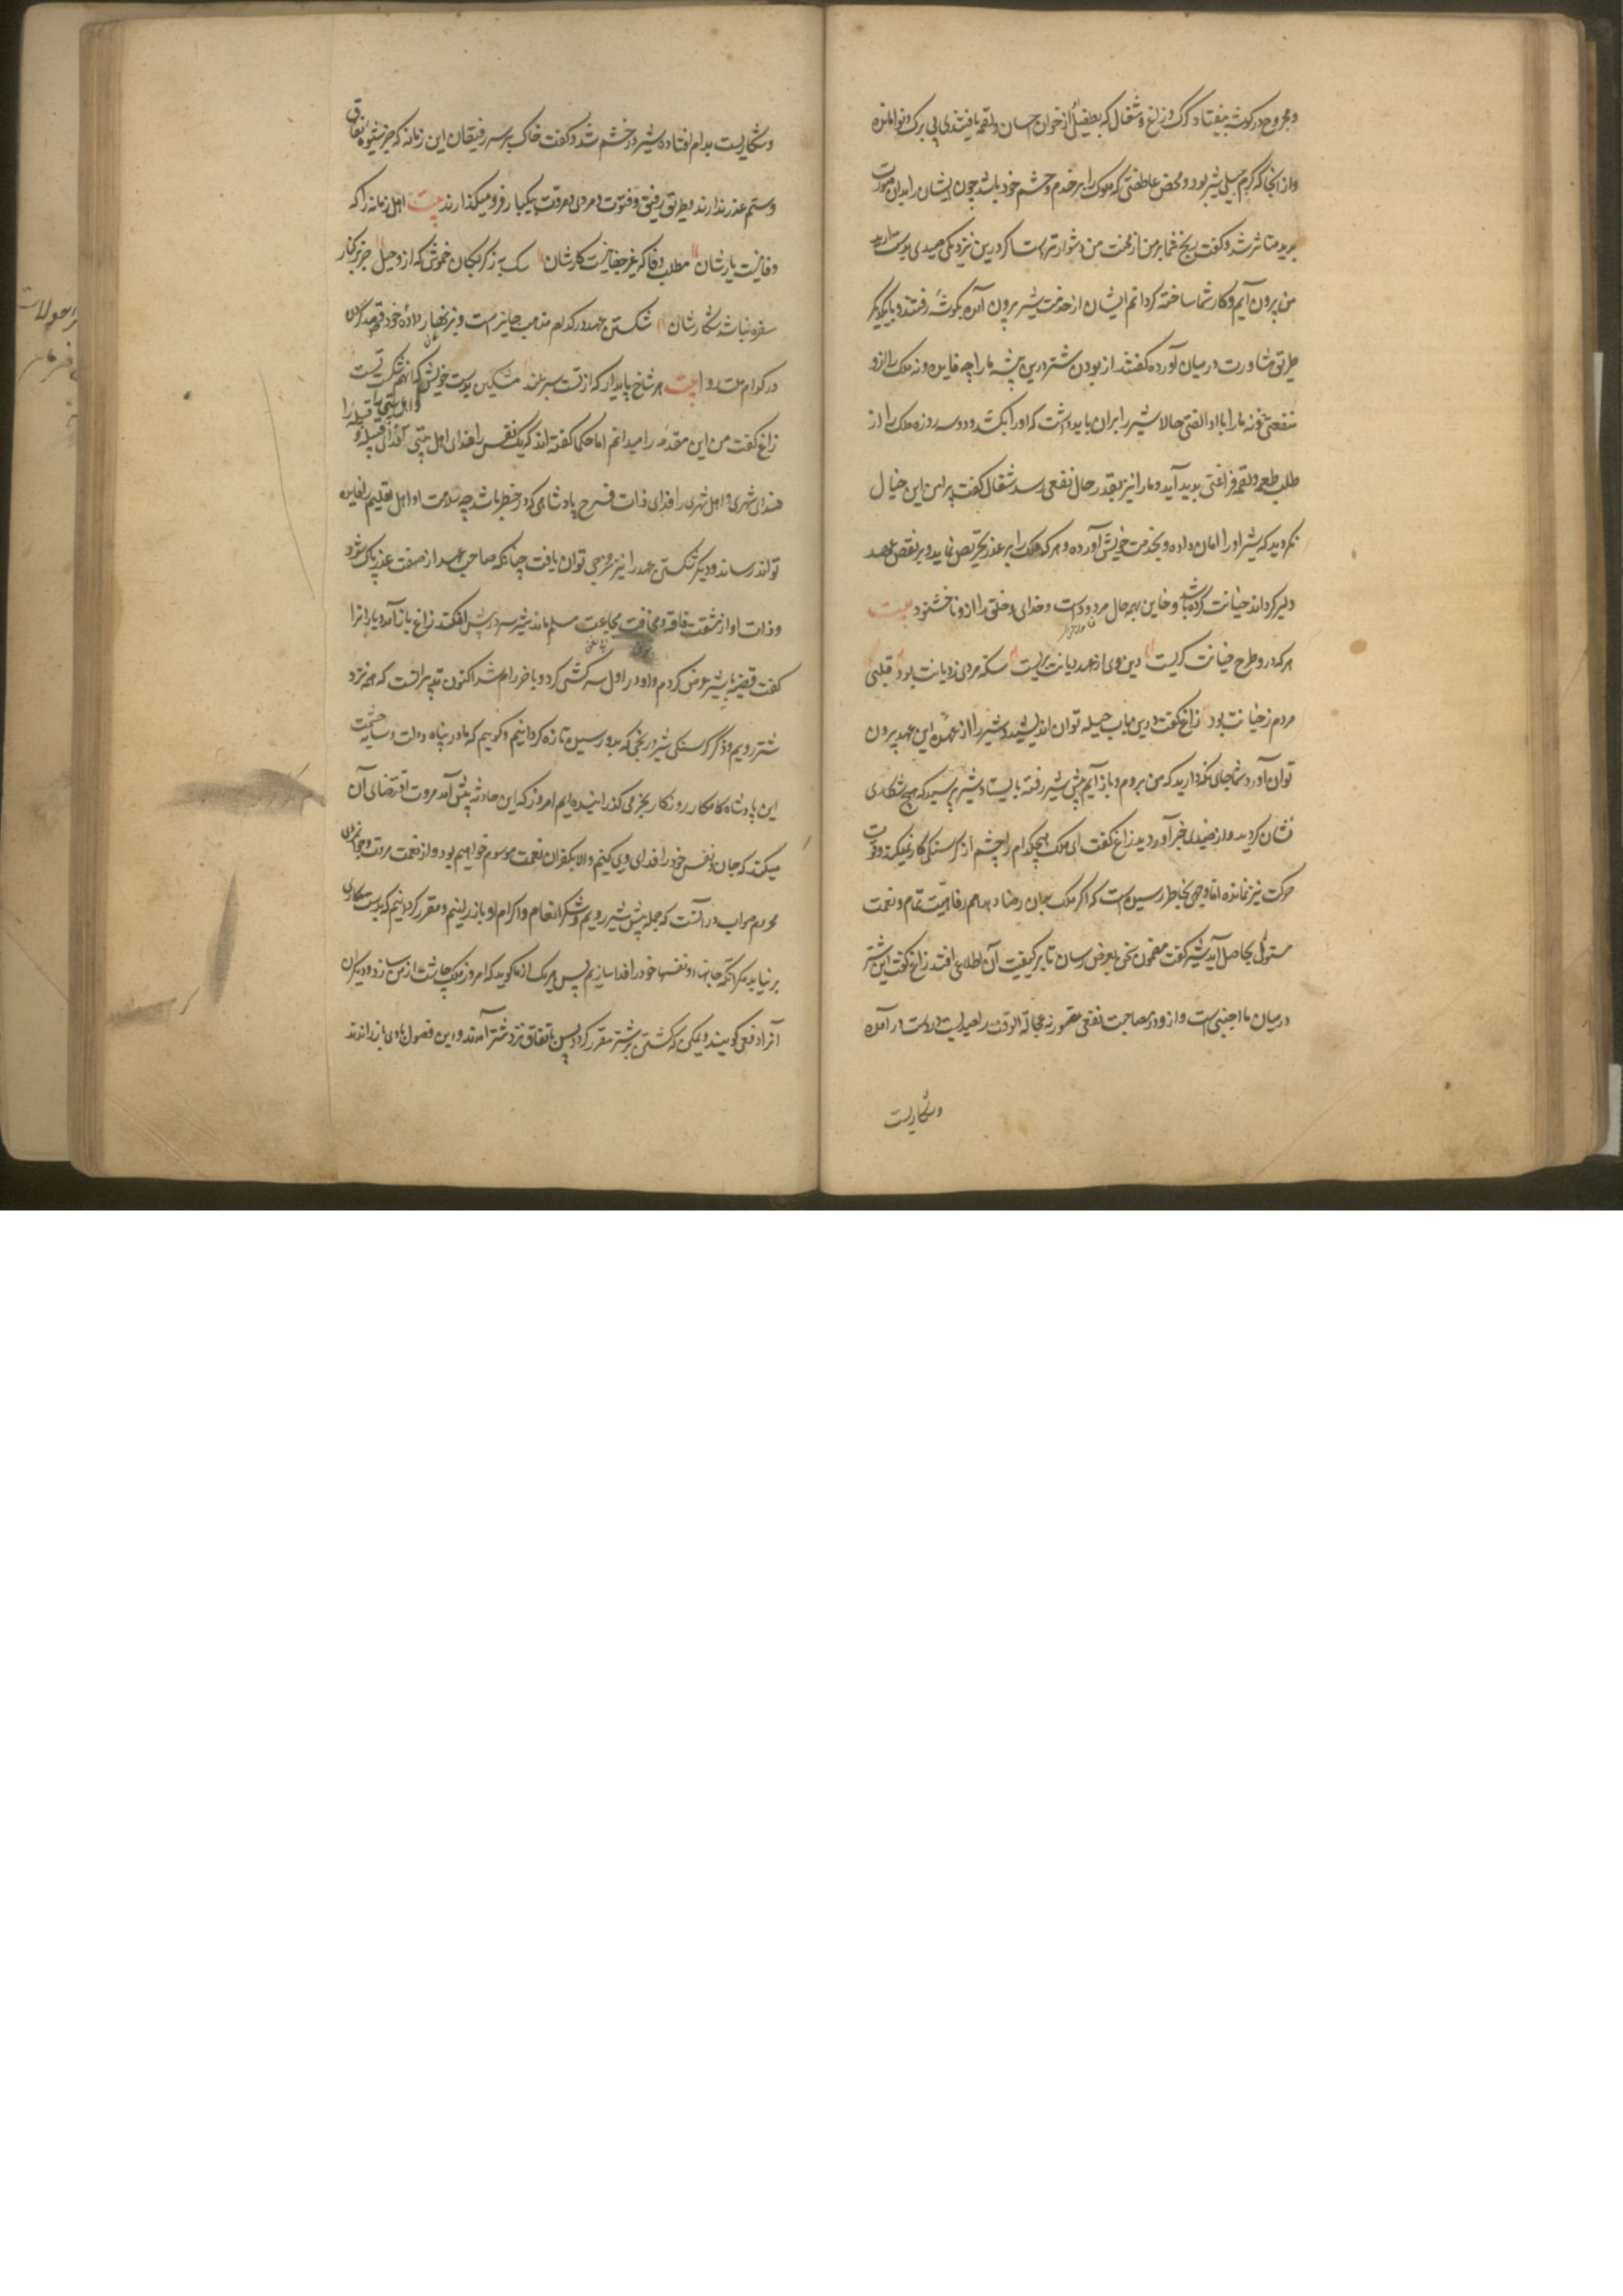 و مجروح در گوشه بیفتاد گرگ و زاغ و شغال که بطفیل از خوان احسان او لقمه یافتندی بی برگ و نوا ماندند
و از آنجا که کرم جبلی شیر بود و محض عاطفتی که ملوک را بر خدم و حشم خود باشد چون ایشان را بدان صورت
بدید متاثر شد و گفت رنج شما بر من از محنت من دشوارتر است اگر درین نزدیکی صیدی بدست آرید
من بیرون آیم و کار شما ساخته گردانم ایشان از خدمت شیر بیرون آمده بگوشه رفتند و با یکدیگر
طریق مشاورت در میان آورده گفتند از بودن شتر درین بیشه ما را چه فایده و نه ملک را ازو
منفعتی و نه ما را با او الفتی حالا شیر را بران باید داشت که او را بکشد و دو سه روزه ملک را از
طلب طعمه و لقمه فراغتی بدید آید و ما را نیز بقدر حال نفعی رسد شغال گفت پیرامن این خیال
نگردید که شیر او را امان داده و بخدمت خویش آورده و هر که ملک را بر غدر تحریص نماید و بر نقض عهد
دلیر گرداند خیانت کرده باشد و خاین بهمه حال مردودست و خدای و خلق را ازو ناخشنود بیت
هر که درو طرح خیانت گریست دین وی از عهد دیانت بریست سکه مردی ز دیانت بود قلبی
مردم ز خیانت بود زاغ گفت درین باب حیله توان اندیشید و شیر را از عهده این عهد بیرون
توان آورد شما جای نگهدارید که من بروم و باز آیم پیش شیر رفته بایستاد شیر پرسید که هیچ شکاری
نشان کردید و از صیدی خبر آوردید زاغ گفت ای ملک هیچکدام را چشم از گرسنگی کار نمیکند و قوت
حرکت نیز نمانده اما وجهی بخاطر رسیده است که اگر ملک بدان رضا دهد همه را رفاهیت تمام و نعمت
مستوفی بحاصل آید شیر گفت مضمون سخن بعرض رسان تا بر کیفیت آن اطلاع افتد زاغ گفت این شتر
در میان ما اجنبی است و از و در مصاحبت نفعی متصور نه عجالة الوقت را صیدیست بدست در آمده
و شکاریست
و شکاریست بدام افتاده شیر در خشم شد و گفت خاک بر سر رفیقان این زمانه که جز شیوه نفاق
و ستم عذر ندارند و طریق رفیق و فتوت و مردی و مروت بیکبار فرو میگذارند بیت اهل زمانه را که
وفا نیست یارشان مطلب وفا که غیر جفا نیست کارشان سگ به ز گربگان خموش که از وحیل جز بر کنار
سفره نباشد شکارشان شکستن عهد در کدام مذهب جایز است و بزنهار داده خود قصد کردن
در کدام ملت روا بیت هر شاخ پایدار که از تست سربلند مشکن بدست خویش که آنهم شکست تست
زاغ گفت من این مقدمه را میدانم اما حکما گفته اند که یک نفس را فدای اهل بیتی و اهل بیتی را فدای قبیله و قبیله را
فدای شهری و اهل شهری را فدای ذات فرخ پادشاهی که در خطر باشد چه سلامت او اهل اقلیم را فایده
تواند رساند و دیگر شکستن عهد را نیز مخرجی توان یافت چنانکه صاحب عهد از صفت غدر پاک شود
و ذات او از مشقت فاقه و مخافت مجاعت مسلم ماند شیر سر در پیش افکند زاغ باز آمد و یاران را
گفت قضیه با شیر عرض کردم و او در اول سرکشی کرد و باخر رام شد اکنون تدبیر آنست که همه نزد
شتر رویم و ذکر گرسنگی شیر و رنجی که بدو رسیده تازه گردانیم و گوییم که ما در پناه دولت و سایه حشمت
این پادشاه کامگار روزگار بخرمی گذرانیده ایم امروز که این حادثه پیش آمد مروت اقتضای آن
میکند که جان و نفس خود را فدای وی کنیم و الا بکفران نعمت موسوم خواهیم بود و از نعمت مروت و جوانمردی
محروم صواب در آنست که جمله پیش شیر رویم و شکر انعام و اکرام او باز رانیم و مقرر گردانیم که بدست ما کاری
بر نیاید مگر آنکه جانها و نفسها خود را فدا سازیم پس هر یک از ما گوید که امروز ملک چاشت از من سازد و دیگران
آنرا دفعی گویند و یمکن که کشتن بر شتر مقرر گردد پس باتفاق نزد شتر آمدند و این فصول با وی باز راندند